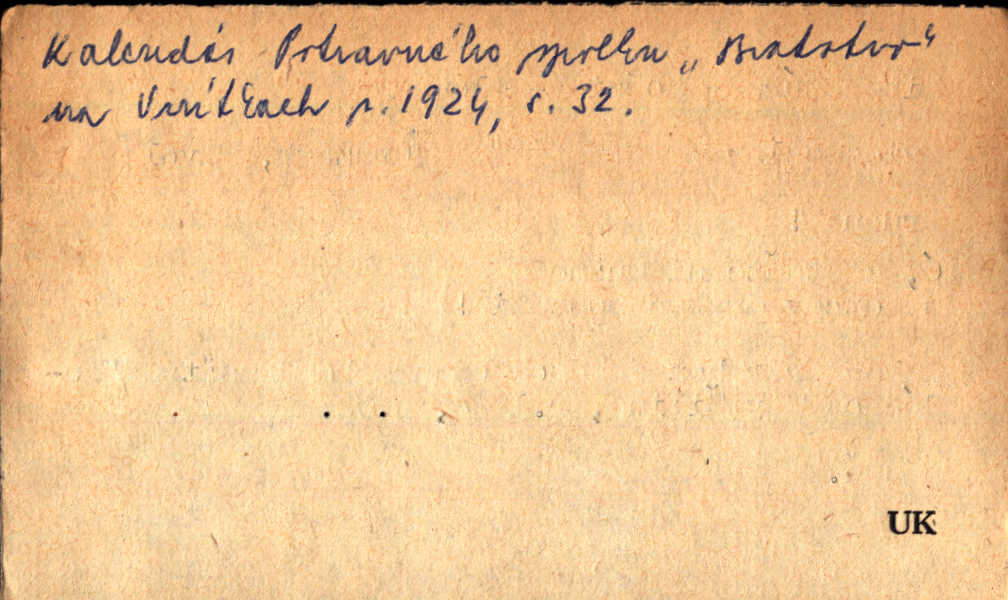 Kalendár Potravného spolku „Bratstvo“
na Vrútkach r. 1924, s. 32.
UK